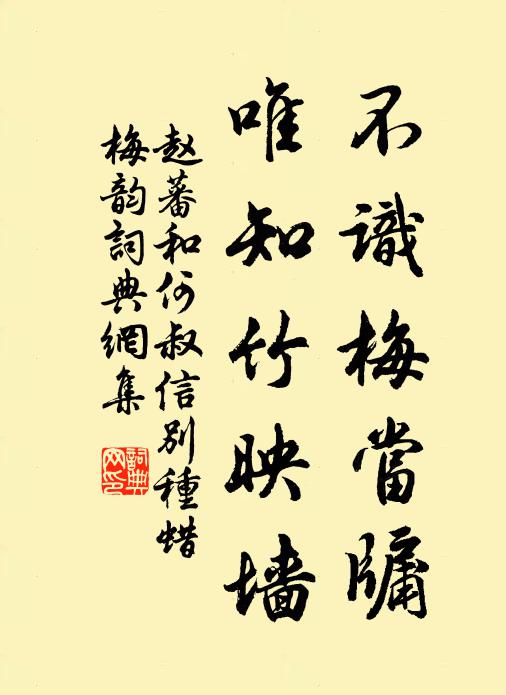 不識梅當牗
唯知竹映墙
赵蕃和何叔信別種蜡
梅韵詞典網集
詞典网印